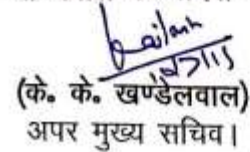 (के. के. खण्डेलवाल)
अपर मुख्य सचिव।